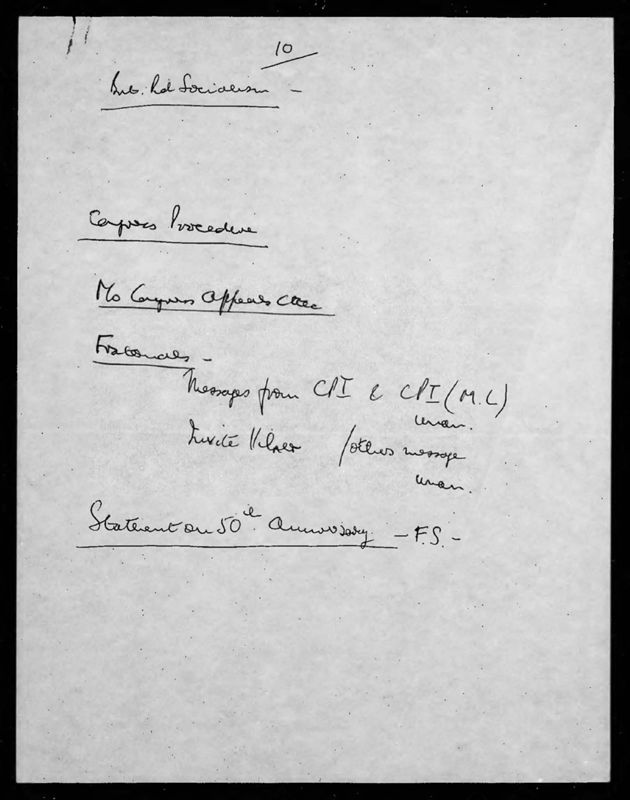 10
Brit. Rd Socialism -
Congress Procedure
Congress Appeals Cttee
Fraternals -
Messages from CPI & CPI (M.L)
unan.
Invite / others message
unan.
Statement on 50th Anniversary - F.S. -